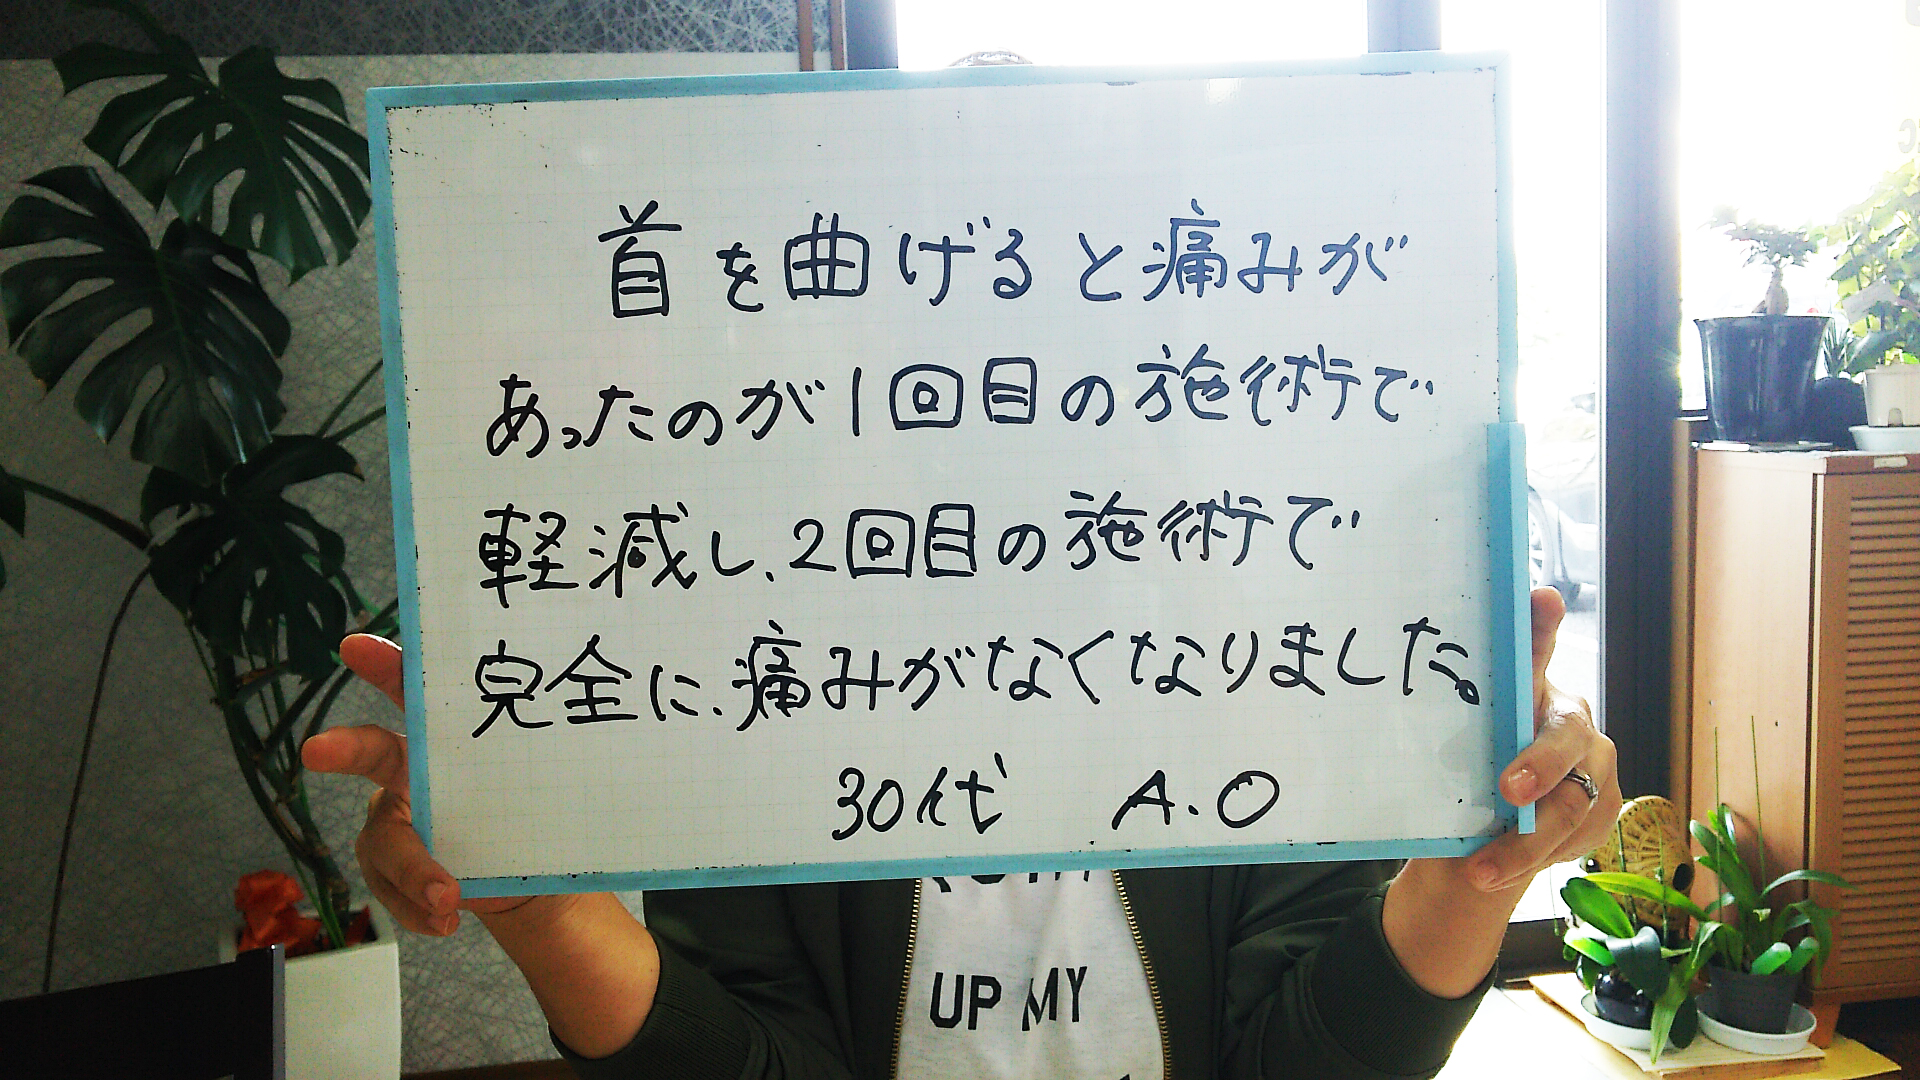 首を曲げると痛みが
あったのが1回目の施術で
軽減し、2回目の施術で
完全に、痛みがなくなりました。
30代 A.O
UP MY